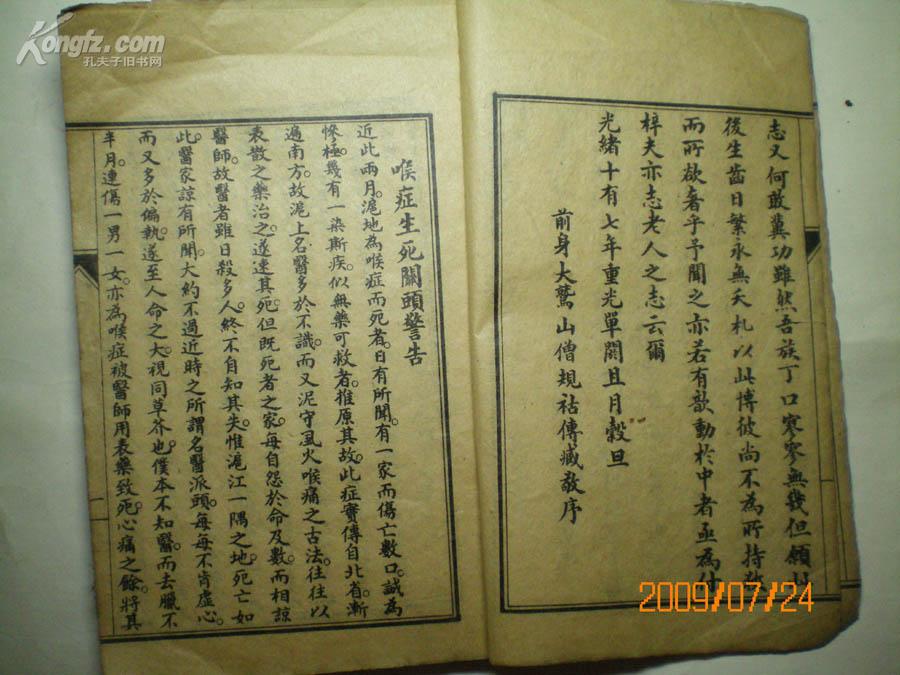 志又何敢冀功雖然吾族丁口寥寥無幾但願
後生齒日繁永無夭札以此博彼尚不為所持
而所欲奢乎予聞之亦若有歆動於中者亟為付
梓夫亦志老人之志云爾
光緒十有七年重光單閼且月穀旦
前身大鷲山僧規祜傳臧敬序
喉症生死關頭警告
近此兩月。滬地為喉症而死者。日有所聞。有一家而傷亡數口。誠為
慘極。幾有一染斯疾。似無藥可救者。推原其故。此症實傳自北省。漸
遍南方。故滬上名醫多於不識。而又泥守風火喉痛之古法。往往以
表散之藥治之。遂速其死。但既死者之家。每自怨於命及數。而相諒
醫師。故醫者雖日殺多人。終不自知其失。惟滬江一隅之地。死亡如
此。醫家諒有所聞。大約不過近時之所謂名醫派頭。每每不肯虛心。
而又多於偏執。遂至人命之大。視同草芥也。僕本不知醫。而去臘不
半月。連傷一男一女。亦為喉症被醫師用表藥致死。心痛之餘。將其
Kongfz.com
孔夫子旧书网
2009/07/24